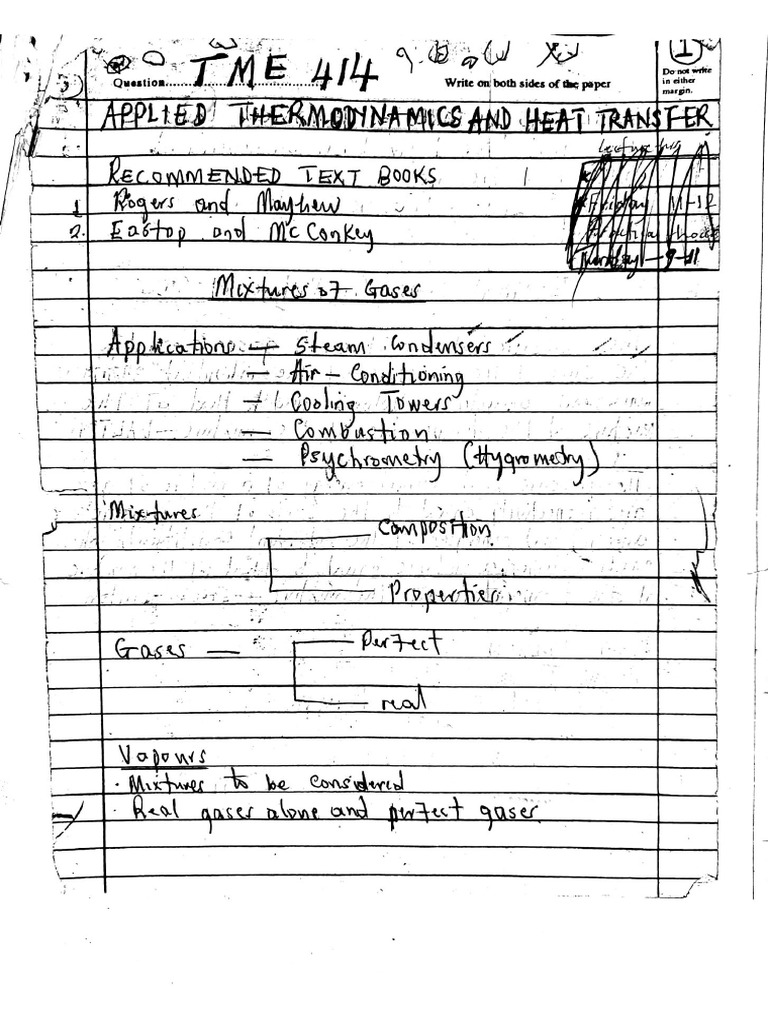 1
Question.......TME 414
Write on both sides of the paper
Do not write
in either
margin.
APPLIED THERMODYNAMICS AND HEAT TRANSFER
RECOMMENDED TEXT BOOKS
1 Rogers and Mayhew
2. Eastop and McConkey
Friday 11-12
Tuesday - 9-11
Mixtures of Gases
Applications — Steam Condensers
— Air-Conditioning
— Cooling Towers
— Combustion
— Psychrometry (Hygrometry)
Mixtures
Composition
Properties
Gases —
Perfect
real
Vapours
· Mixtures to be considered
· Real gases alone and perfect gases.